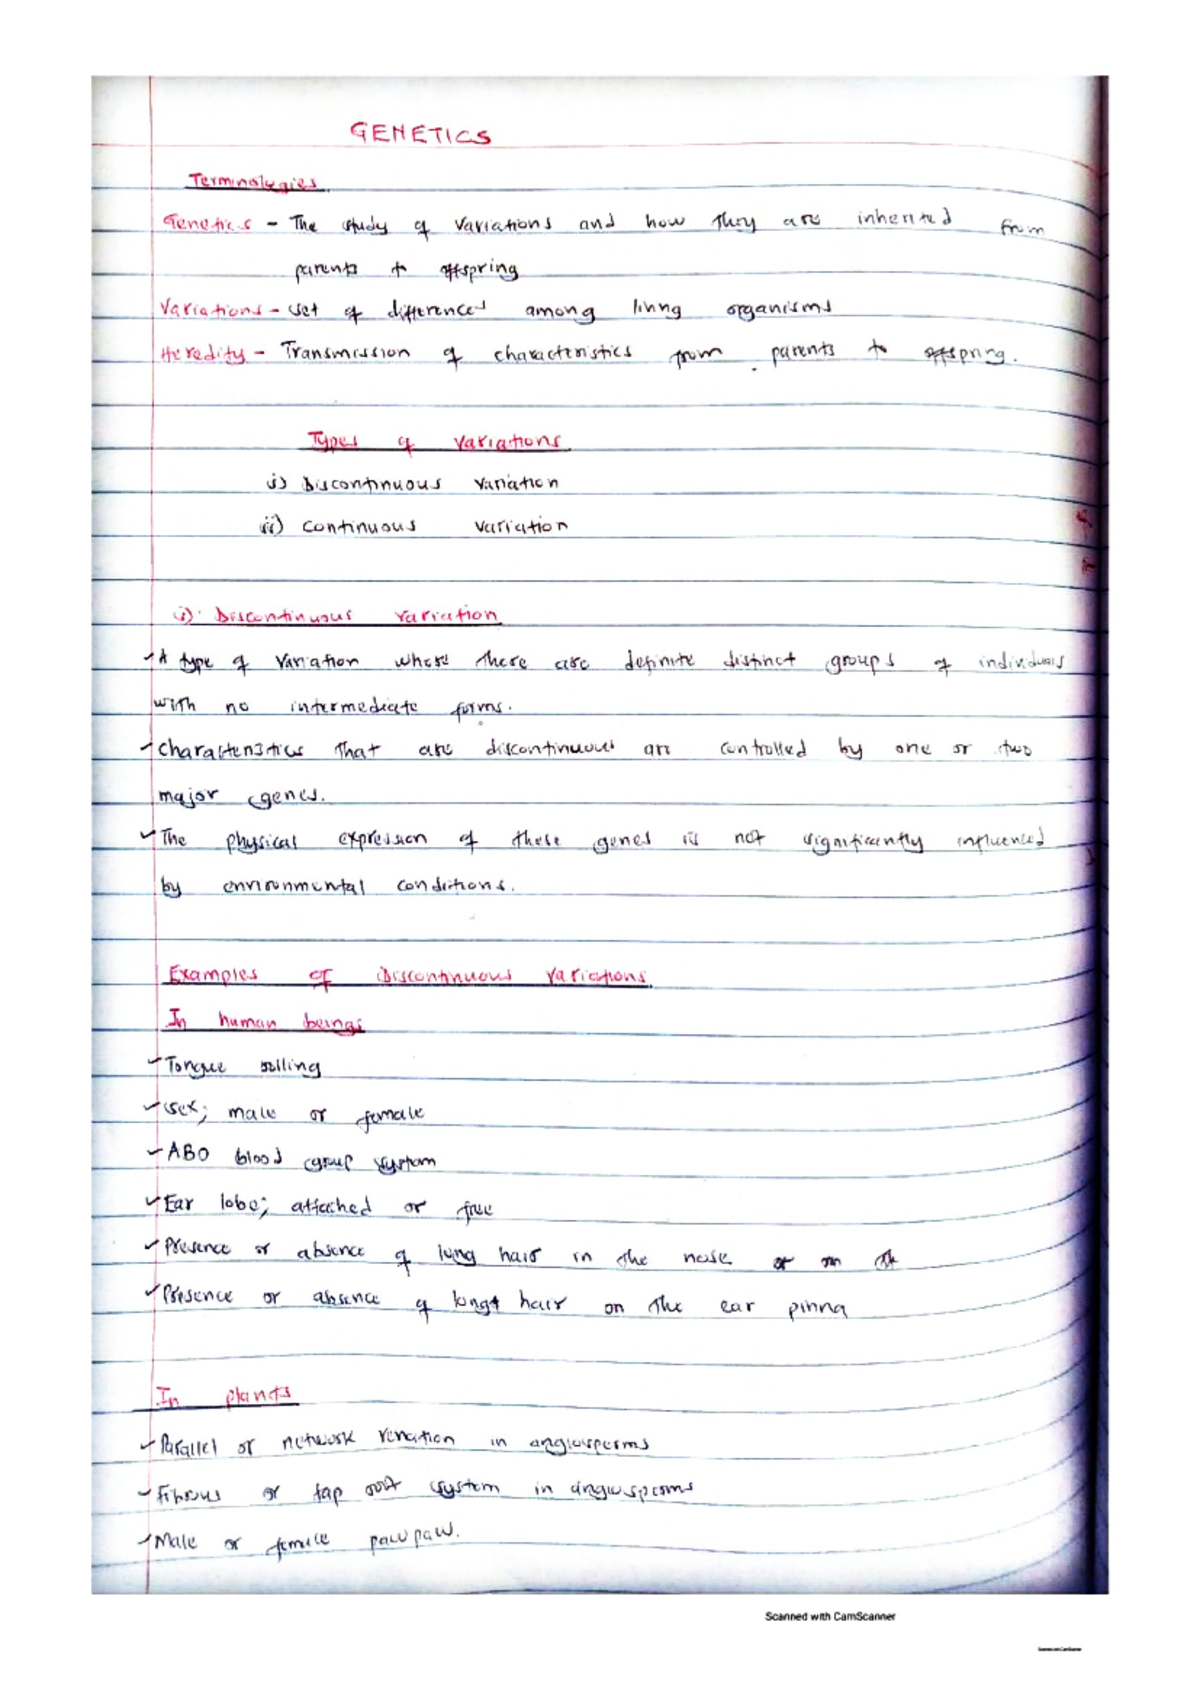 GENETICS
Terminologies
Genetics - The study of variations and how they are inherited from
parents to offspring
Variations - set of differences among living organisms
Heredity - Transmission of characteristics from parents to offspring.
Types of variations
i) Discontinuous variation
ii) Continuous variation
i) Discontinuous variation
✓A type of variation where there are definite distinct groups of individuals
with no intermediate forms.
✓Characteristics that are discontinuous are controlled by one or two
major genes.
✓The physical expression of these genes is not significantly influenced
by environmental conditions.
Examples of Discontinuous variations
In human beings
✓Tongue rolling
✓Sex; male or female
✓ABO blood group system
✓Ear lobe; attached or free
✓Presence or absence of long hair in the nose
✓Presence or absence of long hair on the ear pinna
In plants
✓Parallel or network venation in angiosperms
✓Fibrous or tap root system in angiosperms
✓Male or female pawpaw.
Scanned with CamScanner
Scanned with CamScanner